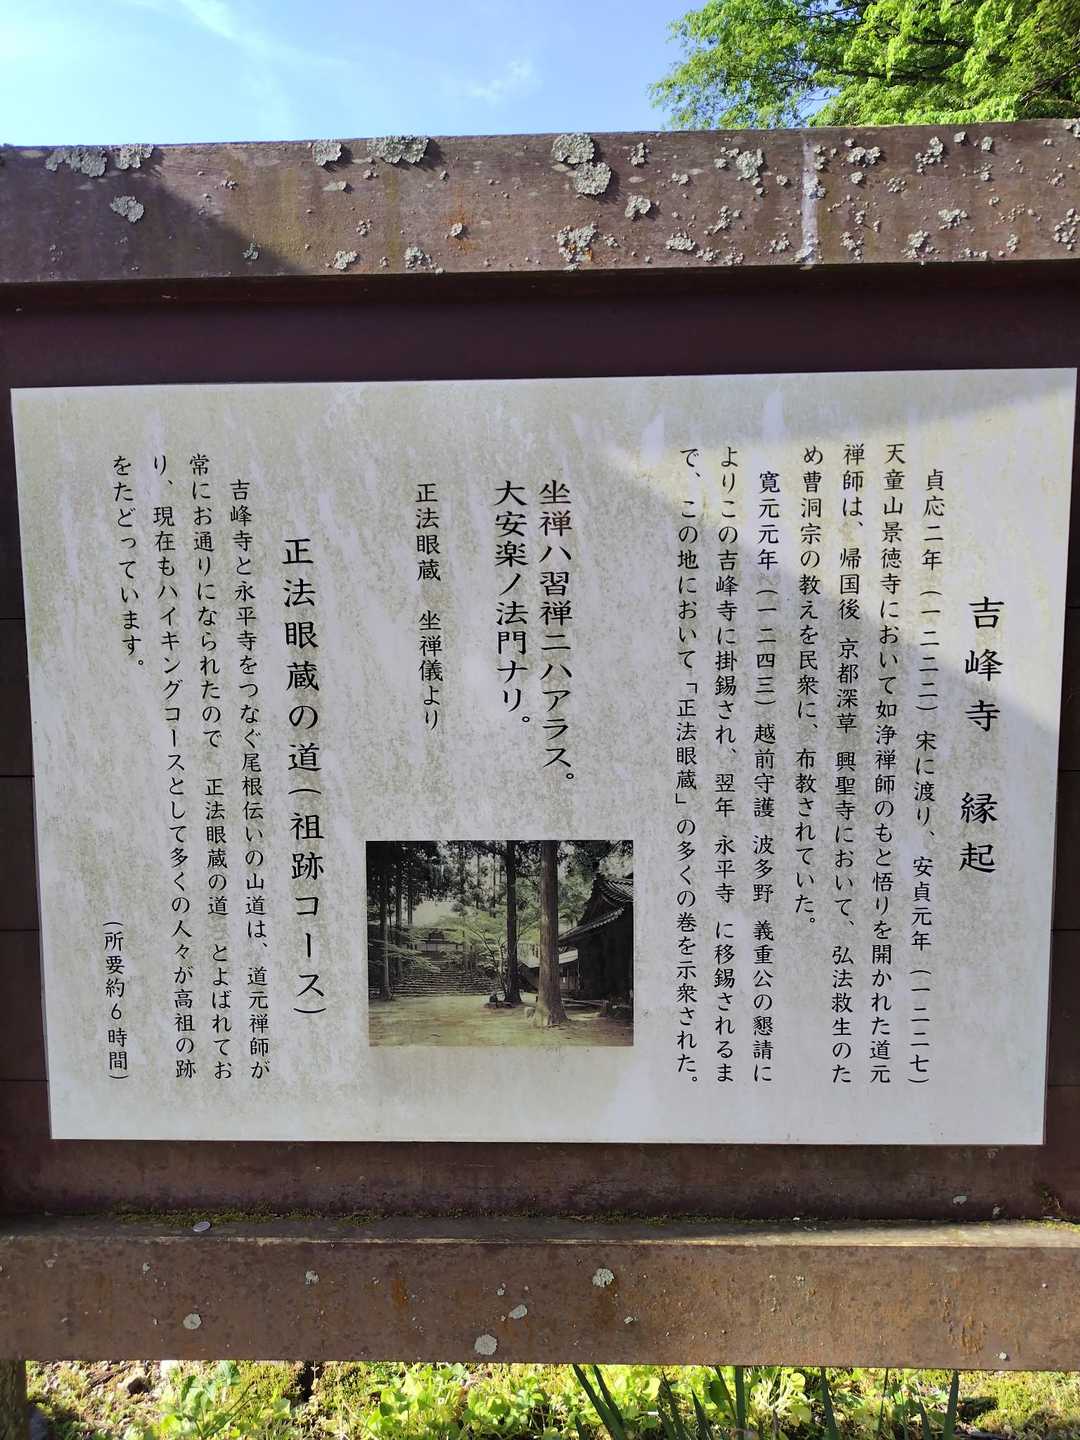 吉峰寺 縁起
貞応二年（一二二二）宋に渡り、安貞元年（一二二七）
天童山景徳寺において如浄禅師のもと悟りを開かれた道元
禅師は、帰国後 京都深草 興聖寺において、弘法救生のた
め曹洞宗の教えを民衆に、布教されていた。
寛元元年（一二四三）越前守護 波多野 義重公の懇請に
よりこの吉峰寺に掛錫され、翌年 永平寺 に移錫されるま
で、この地において、「正法眼蔵」の多くの巻を示衆された。
坐禅ハ習禅ニハアラス。
大安楽ノ法門ナリ。
正法眼蔵 坐禅儀より
正法眼蔵の道（祖跡コース）
吉峰寺と永平寺をつなぐ尾根伝いの山道は、道元禅師が
常にお通りになられたので 正法眼蔵の道 とよばれてお
り、現在もハイキングコースとして多くの人々が高祖の跡
をたどっています。
（所要約6時間）